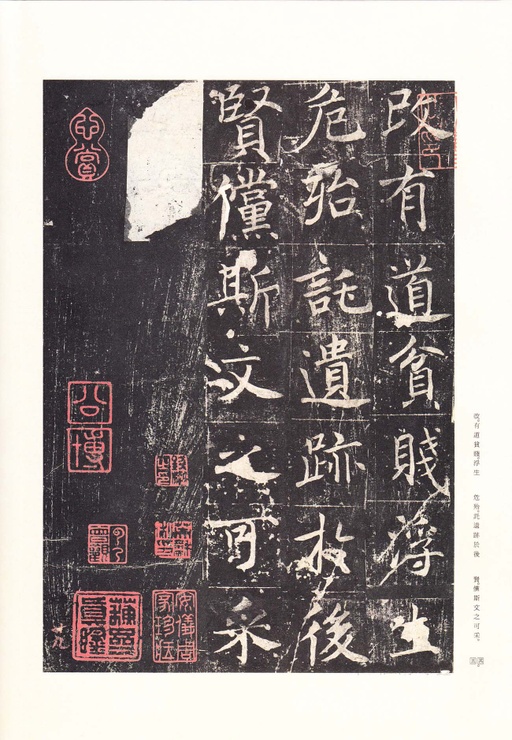 改有道貧賤浮生
危殆託遺跡於後
賢儻斯文之可采
公博
改有道貧賤浮生　危殆託遺跡於後　賢儻斯文之可采。